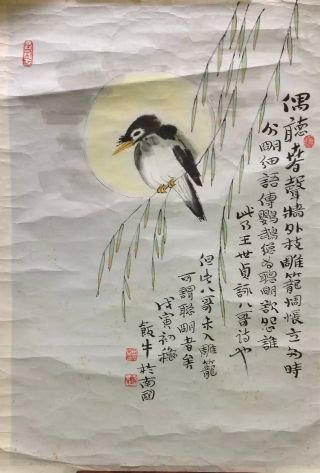 偶聽春聲牆外枝雕籠惆悵立多時
分明細語傳鸚鵡縱為聰明欲怨誰
此乃王世貞詠八哥詩也
但此八哥未入雕籠
可謂聰明者矣
戊寅初穐
飯牛於南國